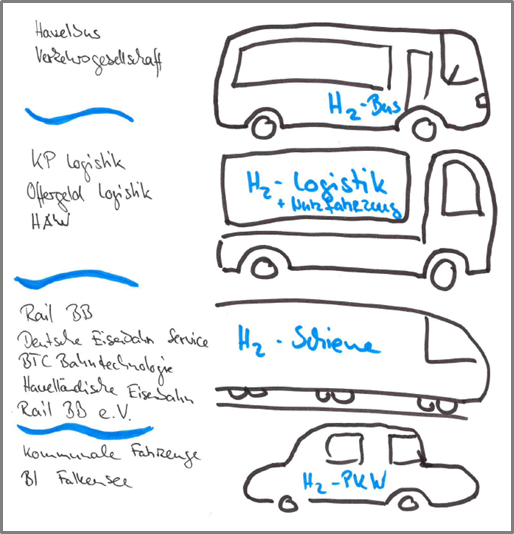 Havelbus
Verkehrsgesellschaft
H2-Bus
KP Logistik
Offergeld Logistik
HAW
H2-Logistik
+ Nutzfahrzeug
Rail BB
Deutsche Eisenbahn Service
BTC Bahntechnologie
Havelländische Eisenbahn
Rail BB e.V.
H2-Schiene
Kommunale Fahrzeuge
BI Falkensee
H2-PKW